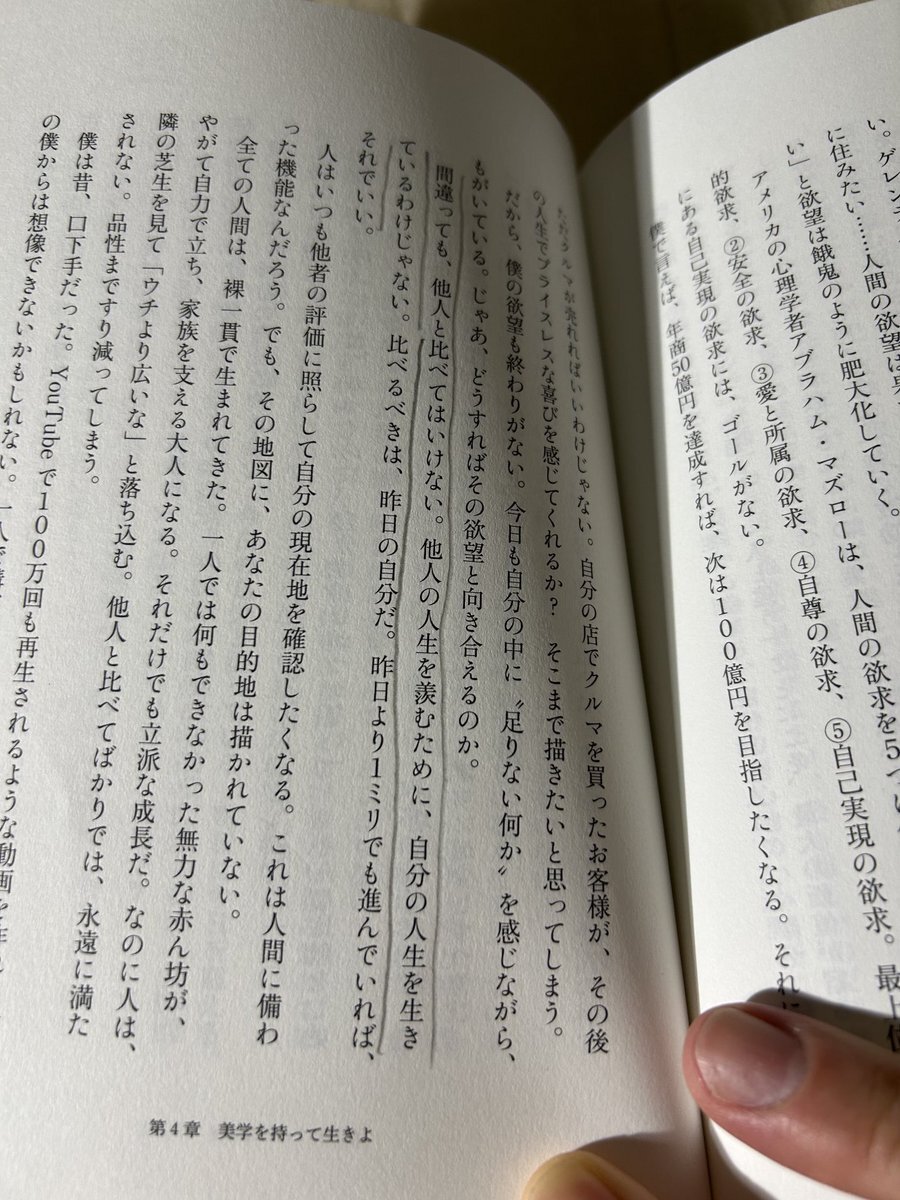 い。ゲレン
に住みたい……人間の欲望は果
い」と欲望は餓鬼のように肥大化していく。
アメリカの心理学者アブラハム・マズローは、人間の欲求を5つに
的欲求、②安全の欲求、③愛と所属の欲求、④自尊の欲求、⑤自己実現の欲求。最上位
にある自己実現の欲求には、ゴールがない。
僕で言えば、年商50億円を達成すれば、次は100億円を目指したくなる。それに
クルマが売れればいいわけじゃない。自分の店でクルマを買ったお客様が、その後
の人生でプライスレスな喜びを感じてくれるか？　そこまで描きたいと思ってしまう。
だから、僕の欲望も終わりがない。今日も自分の中に〝足りない何か〟を感じながら、
もがいている。じゃあ、どうすればその欲望と向き合えるのか。
間違っても、他人と比べてはいけない。他人の人生を羨むために、自分の人生を生き
ているわけじゃない。比べるべきは、昨日の自分だ。昨日より1ミリでも進んでいれば、
それでいい。
人はいつも他者の評価に照らして自分の現在地を確認したくなる。これは人間に備わ
った機能なんだろう。でも、その地図に、あなたの目的地は描かれていない。
全ての人間は、裸一貫で生まれてきた。一人では何もできなかった無力な赤ん坊が、
やがて自力で立ち、家族を支える大人になる。それだけでも立派な成長だ。なのに人は、
隣の芝生を見て「ウチより広いな」と落ち込む。他人と比べてばかりでは、永遠に満た
されない。品性まですり減ってしまう。
僕は昔、口下手だった。YouTubeで100万回も再生されるような動画を
の僕からは想像できないかもしれない。
第4章　美学を持って生きよ